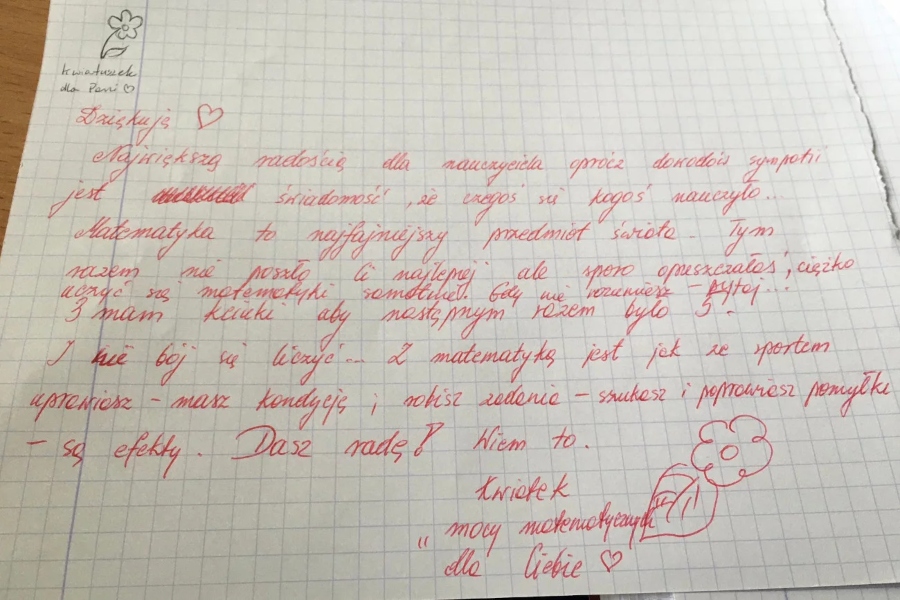 Kwiatuszek
dla Pani ♡
Dziękuję ♡
Największą radością dla nauczyciela oprócz dowodów sympatii
jest świadomość, że czegoś się kogoś nauczyło...
Matematyka to najfajniejszy przedmiot świata. Tym
razem nie poszło Ci najlepiej ale sporo opuszczałaś, ciężko
uczyć się matematyki samotnie. Gdy nie rozumiesz - pytaj...
3 mam kciuki aby następnym razem było 5.
I nie bój się liczyć... Z matematyką jest jak ze sportem
uprawiasz - masz kondycję i robisz zadania - szukasz i poprawiasz pomyłki
- są efekty. Dasz radę! Wiem to.
Kwiatek
„mocy matematycznych"
dla Ciebie ♡